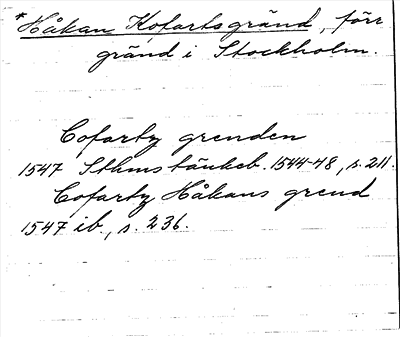 *Håkan Kofartsgränd, förr
gränd i Stockholm.
Cofarty grenden
1547 Sthms tänkeb. 1544-48, s. 211.
Cofarty Håkans grend
1547 ib., s. 236.